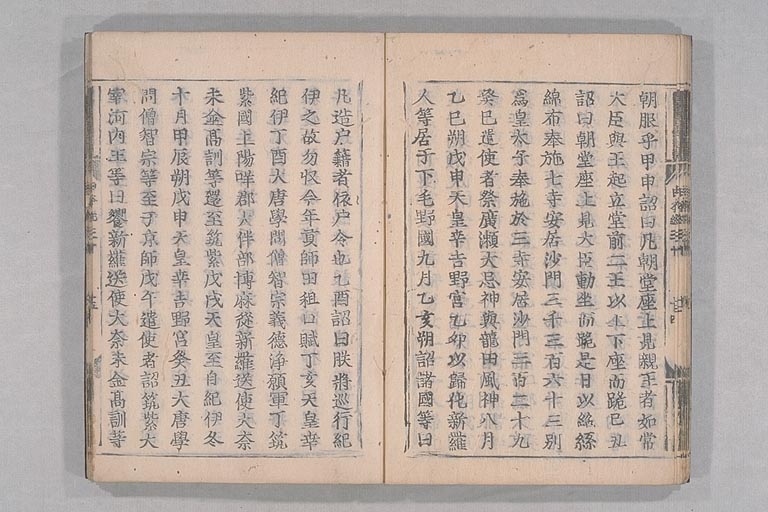 朝服乎甲申詔曰凡朝堂座上見親王者如常
大臣與王起立堂前二王以上下座而跪己丑
詔曰朝堂座上見大臣動坐而跪是日以絁絲
綿布奉施七寺安居沙門三千三百六十三別
爲皇太子奉施於三寺安居沙門三百二十九
癸巳遣使者祭廣瀬大忌神與龍田風神八月
乙巳朔戊申天皇幸吉野宮乙卯以歸化新羅
人等居于下毛野國九月乙亥朔詔諸國等曰
凡造戸籍者依戸令也乙酉詔曰朕將巡行紀
伊之故勿收今年京師田租口賦丁亥天皇幸
紀伊丁酉大唐學問僧智宗義德淨願軍丁筑
紫國上陽咩郡大伴部博麻從新羅送使大奈
末金髙訓等還至筑紫戊戌天皇至自紀伊冬
十月甲辰朔戊申天皇幸吉野宮癸丑大唐學
問僧智宗等至于京師戊午遣使者詔筑紫大
宰河内王等曰饗新羅送使大奈末金髙訓等